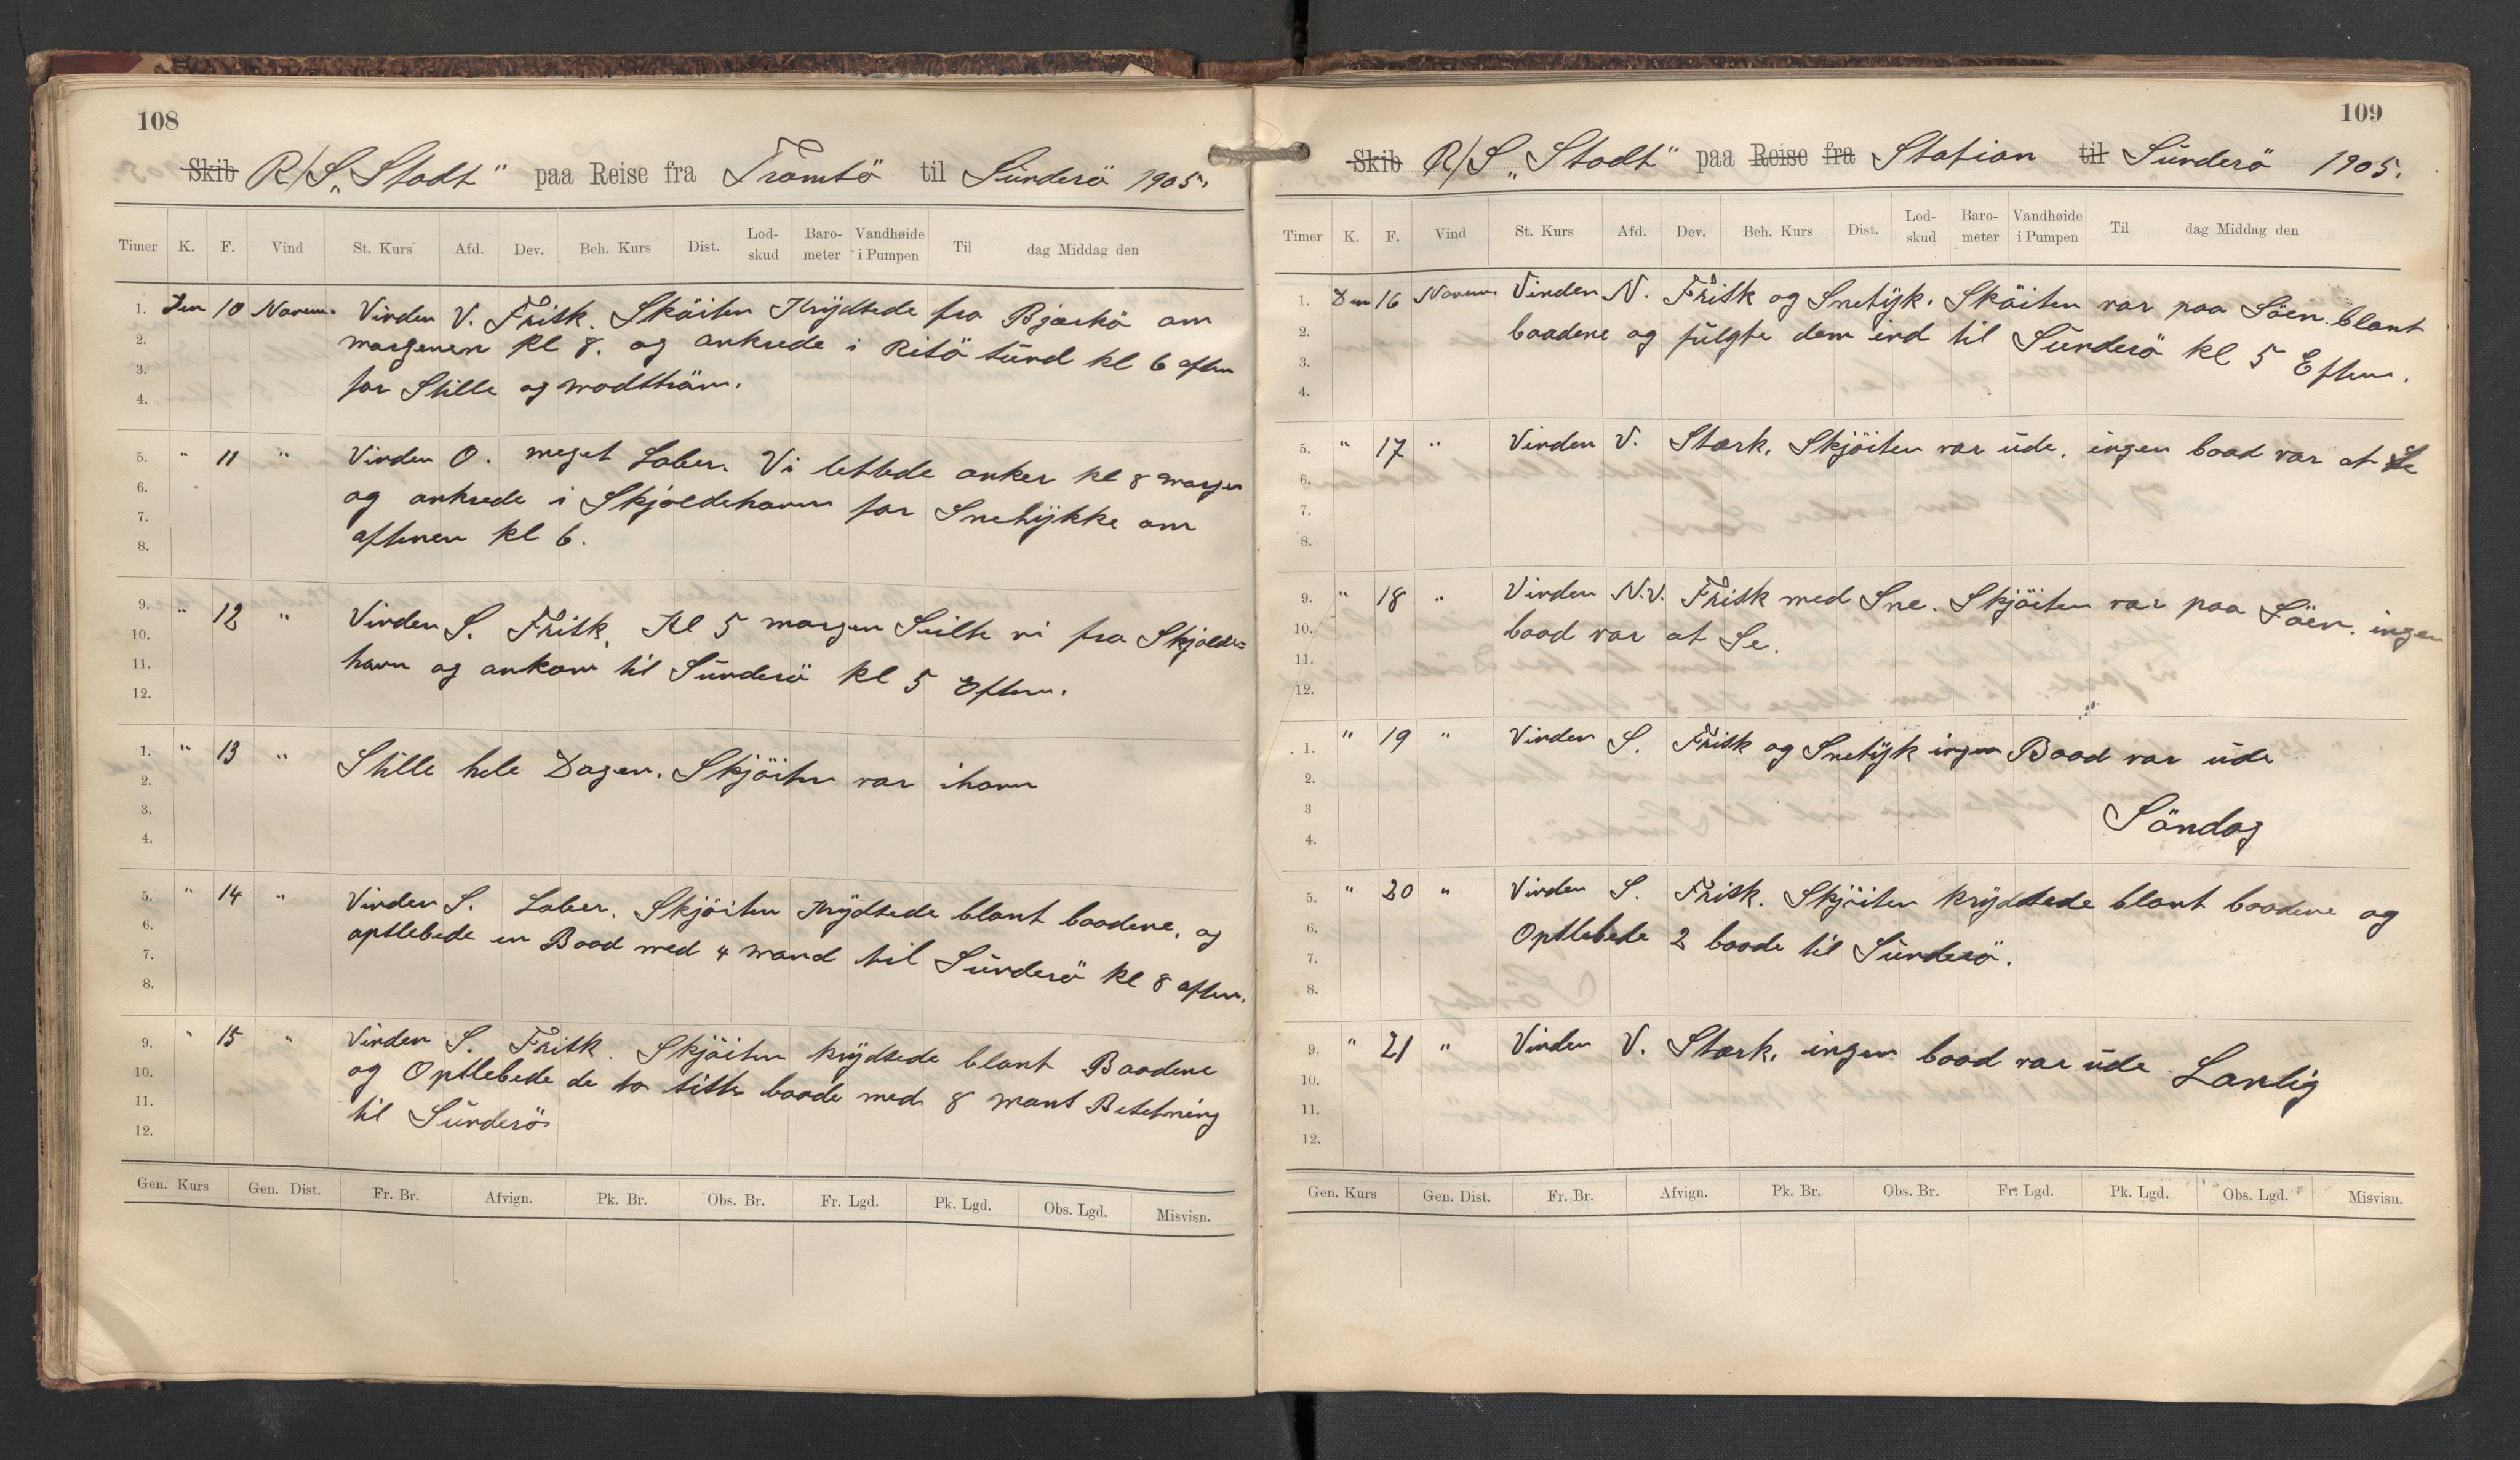 108
Skib R/S „Stadt“ paa Reise fra Tromsö til Sünderö 1905.
Timer K. F. Vind St. Kurs Afd. Dev. Beh. Kurs Dist. Lod-skud Baro-meter Vandhøide i Pumpen Til dag Middag den
1. Den 10 Novem. Vinden V. Frisk. Sköiten Krÿdsede fra Bjarkö om
2. morgenen kl 8. og ankrede i Risö sünd kl 6 aften
3. for Stille og modström.
4.
5. " 11 " Vinden O. meget Laber. Vi lettede anker kl 8 morgen
6. og ankrede i Skjoldehavn for Snetÿkke om
7. aftenen kl 6.
8.
9. " 12 " Vinden S. Frisk, Kl 5 morgen Seilte vi fra Skjolde=
10. havn og ankom til Sünderö kl 5 Eftm.
11.
12.
1. " 13 " Stille hele Dagen. Skjöiten var ihavn
2.
3.
4.
5. " 14 " Vinden S. Laber. Skjöiten Krÿdsede blant baadene, og
6. opslebede en Baad med 4 mand til Sünderö kl 8 aften.
7.
8.
9. " 15 " Vinden S. Frisk. Skjöiten krÿdsede blant Baadene
10. og Opslebede de to siste baade med 8 mans Besetning
11. til Sünderö
12.
Gen. Kurs Gen. Dist. Fr. Br. Afvign. Pk. Br. Obs. Br. Fr. Lgd. Pk. Lgd. Obs. Lgd. Misvisn.
109
Skib R/S „Stadt“ paa Reise fra Station til Sünderö 1905.
Timer K. F. Vind St. Kurs Afd. Dev. Beh. Kurs Dist. Lod-skud Baro-meter Vandhøide i Pumpen Til dag Middag den
1. Den 16 Novem. Vinden N. Frisk og Snetÿk. Sköiten var paa Söen blant
2. baadene og fülgte dem ind til Sünderö kl 5 Eftm.
3.
4.
5. " 17 " Vinden V. Stærk, Skjöiten var üde, ingen baad var at Se
6.
7.
8.
9. " 18 " Vinden N.V. Frisk med Sne. Skjöiten var paa Söen. ingen
10. baad var at Se.
11.
12.
1. " 19 " Vinden S. Frisk og Snetÿk ingen Baad var üde
2.
3. Söndag
4.
5. " 20 " Vinden S. Frisk. Skjöiten krÿdsede blant baadene og
6. Opslebede 2 baade til Sünderö.
7.
8.
9. " 21 " Vinden V. Stærk, ingen baad var üde Lanlig
10.
11.
12.
Gen. Kurs Gen. Dist. Fr. Br. Afvign. Pk. Br. Obs. Br. Fr. Lgd. Pk. Lgd. Obs. Lgd. Misvisn.